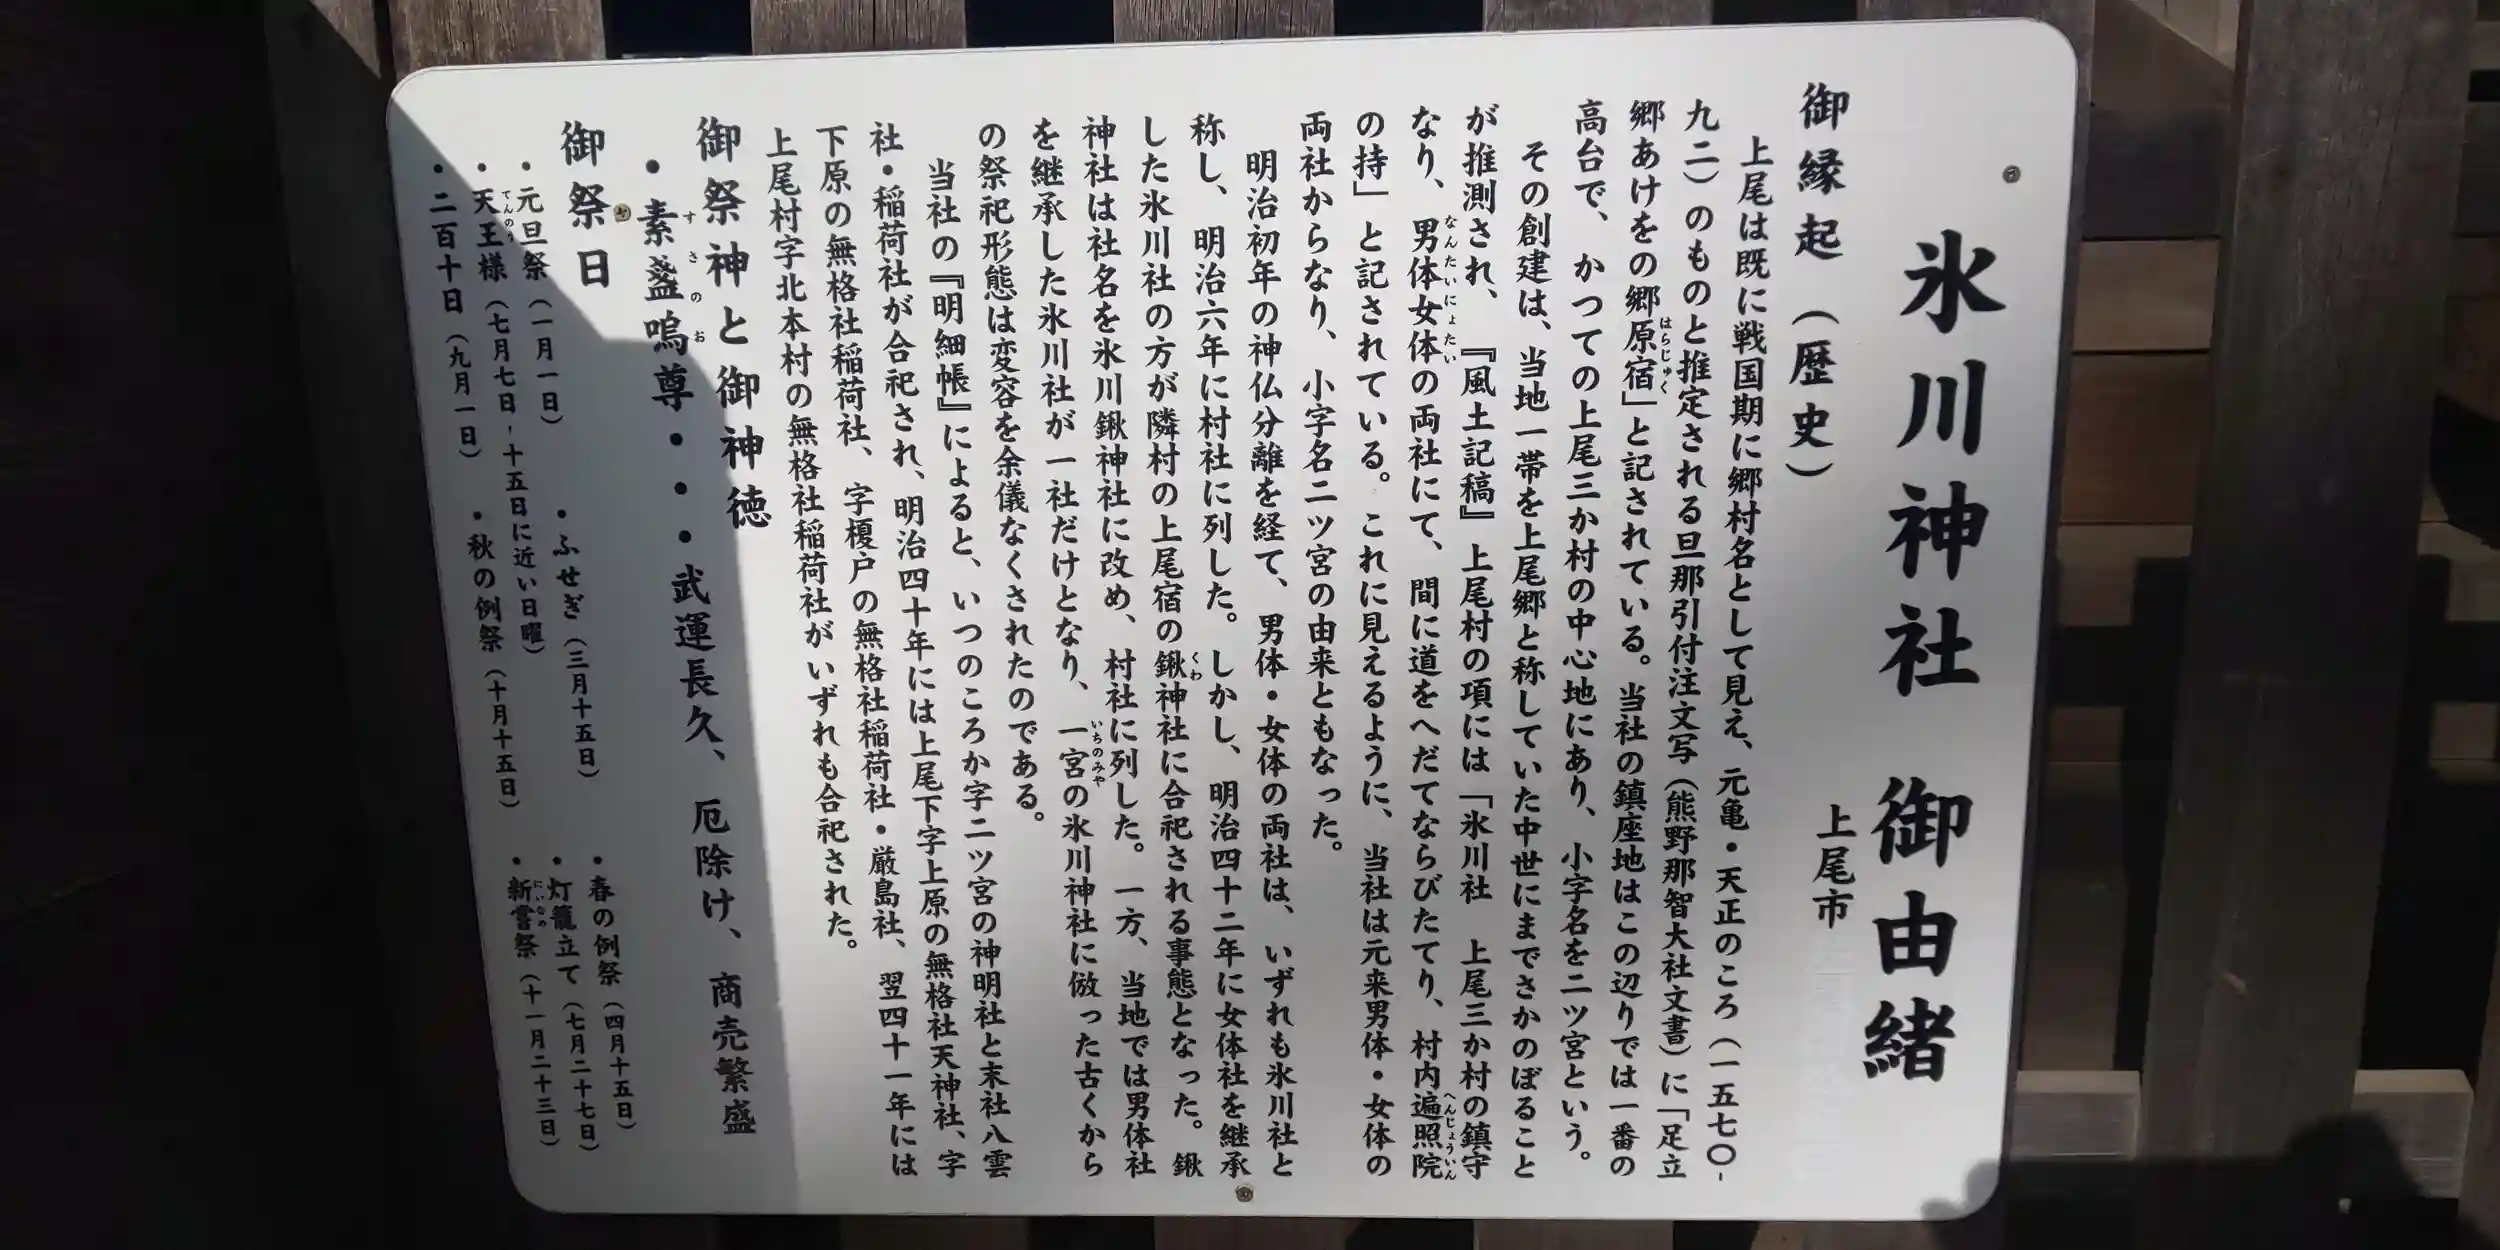 氷川神社 御由緒
上尾市
御縁起（歴史）
上尾は既に戦国期に郷村名として見え、元亀・天正のころ（一五七〇-
九二）のものと推定される旦那引付注文写（熊野那智大社文書）に「足立
郷あけをの郷原宿」と記されている。当社の鎮座地はこの辺りでは一番の
はらじゅく
高台で、かつての上尾三か村の中心地にあり、小字名を二ツ宮という。
その創建は、当地一帯を上尾郷と称していた中世にまでさかのぼること
が推測され、『風土記稿』上尾村の項には「氷川社 上尾三か村の鎮守
なり、男体女体の両社にて、間に道をへだてならびたてり、村内遍照院
なんたいにょたい
へんじょういん
の持」と記されている。これに見えるように、当社は元来男体・女体の
両社からなり、小字名二ツ宮の由来ともなった。
明治初年の神仏分離を経て、男体・女体の両社は、いずれも氷川社と
称し、明治六年に村社に列した。しかし、明治四十二年に女体社を継承
した氷川社の方が隣村の上尾宿の鍬神社に合祀される事態となった。鍬
くわ
神社は社名を氷川鍬神社に改め、村社に列した。一方、当地では男体社
を継承した氷川社が一社だけとなり、一宮の氷川神社に倣った古くから
いちのみや
の祭祀形態は変容を余儀なくされたのである。
当社の『明細帳』によると、いつのころか字二ツ宮の神明社と末社八雲
社・稲荷社が合祀され、明治四十年には上尾下字上原の無格社天神社、字
下原の無格社稲荷社、字榎戸の無格社稲荷社・厳島社、翌四十一年には
上尾村字北本村の無格社稲荷社がいずれも合祀された。
御祭神と御神徳
・素盞嗚尊・・・武運長久、厄除け、商売繁盛
すさのお
御祭日
・元旦祭（一月一日）
・ふせぎ（三月十五日）
・春の例祭（四月十五日）
・天王様（七月七日-十五日に近い日曜）
てんのう
・灯籠立て（七月二十七日）
・二百十日（九月一日）
・秋の例祭（十月十五日）
・新嘗祭（十一月二十三日）
にいなめ